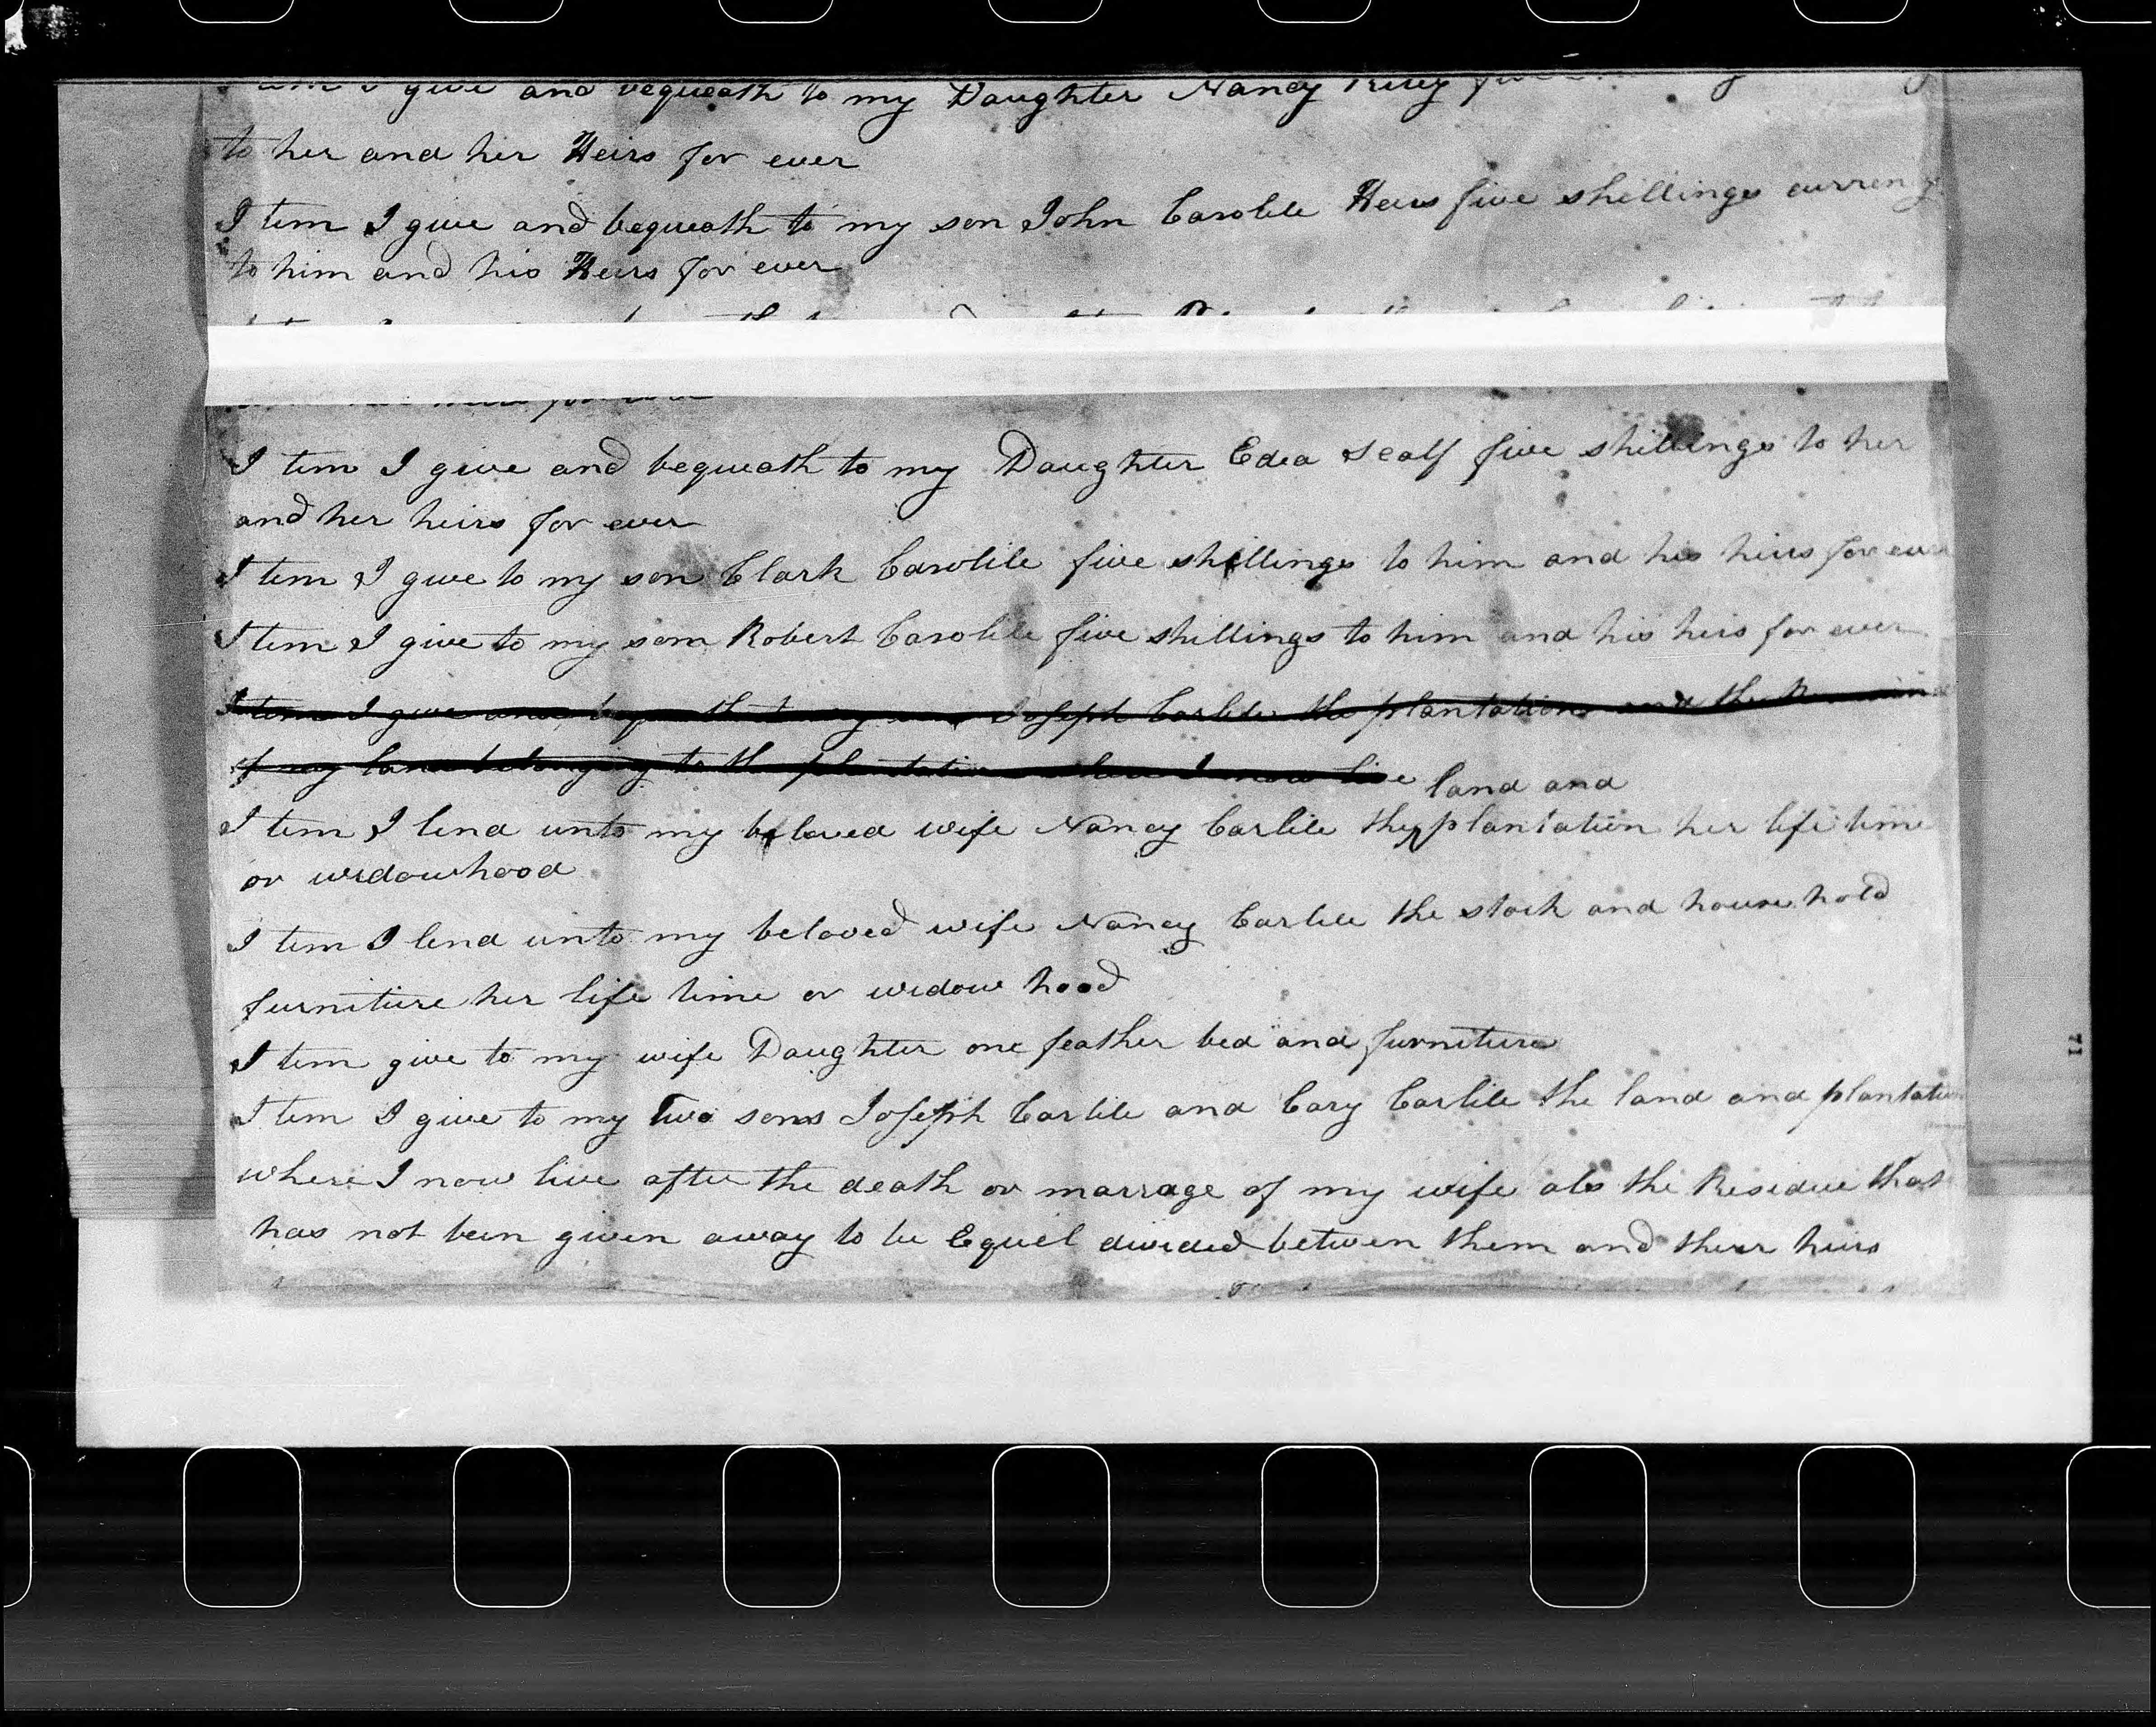 I tem I give and bequeath to my Daughter Nancy
to her and her Heirs for ever
I tem I give and bequeath to my son John Carolile Heirs five shillings currency
to him and his Heirs for ever
I tem I give and bequeath to my Daughter Edea Scalf five shillings to her
and her heirs for ever
I tem I give to my son Clark Carolile five shillings to him and his heirs for ever
I tem I give to my son Robert Carolile five shillings to him and his heis for ever
I tem I give and bequeath to my son Joseph Carlile the plantation and the
of my land belonging to the plantation where I now live
land and
I tem I lend unto my beloved wife Nancy Carlile the plantation her life time
or widowhood
I tem I lend unto my beloved wife Nancy Carlile the stock and house hold
furniture her life time or widow hood
I tem give to my wife Daughter one feather bed and furniture
I tem I give to my Two sons Joseph Carlile and Cary Carlile the land and plantation
where I now live after the death or marrage of my wife als the Residue that
has not been given away to be Equel divided between them and their heirs
71